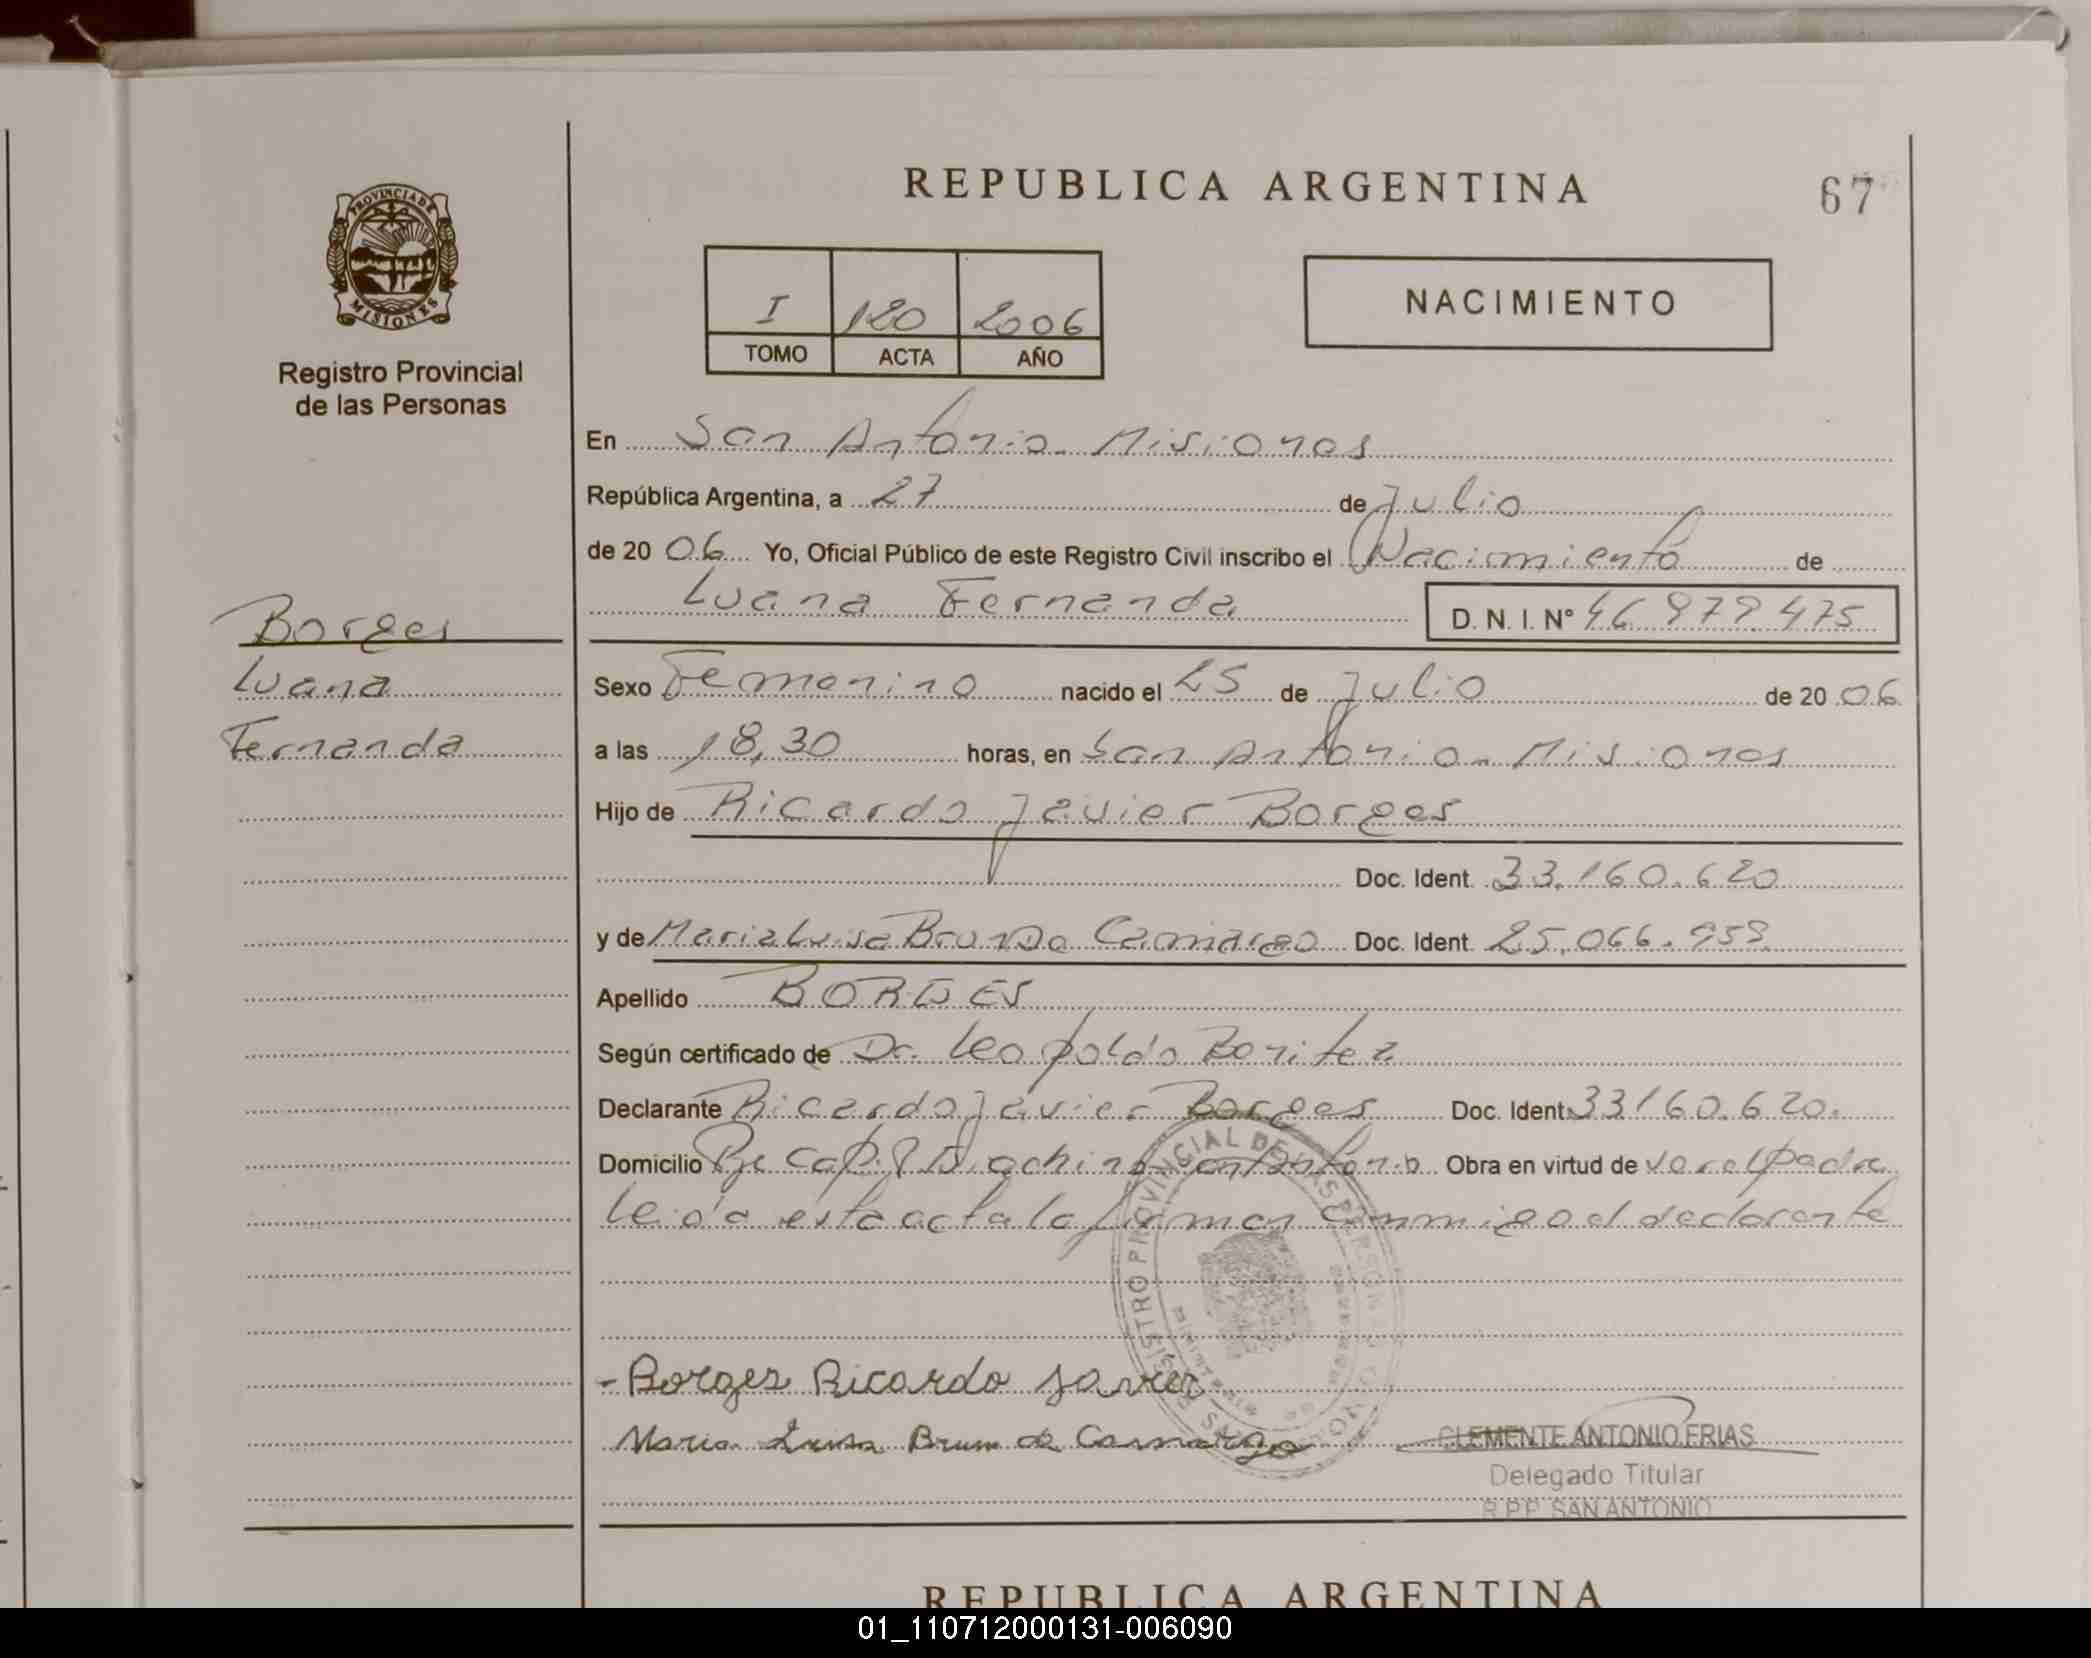 PROVINCIA DE
MISIONES
Registro Provincial
de las Personas
REPUBLICA ARGENTINA
67
I 120 2006
TOMO ACTA AÑO
NACIMIENTO
En San Antonio - Misiones
República Argentina, a 27 de Julio
de 2006 Yo, Oficial Público de este Registro Civil inscribo el Nacimiento de
Luana Fernanda D. N. I. Nº
Borges
Luana
Fernanda
Sexo Femenino nacido el 25 de Julio de 2006
a las 18,30 horas, en San Antonio - Misiones
Hijo de Ricardo Javier Borges
Doc. Ident. 33.160.620
y de Maria Luisa Camargo Doc. Ident. 25.066.
Apellido BORGES
Según certificado de Dr. Leopoldo Benitez
Declarante Ricardo Javier Borges Doc. Ident. 33160.620.
Domicilio Obra en virtud de
Leida esta acta la firman conmigo el declarante
REGISTRO PROVINCIAL DE LAS PERSONAS
- Borges Ricardo Javier
Maria Luisa Brum de Camargo
CLEMENTE ANTONIO FRIAS
Delegado Titular
R.P.P. SAN ANTONIO
REPUBLICA ARGENTINA
01_110712000131-006090